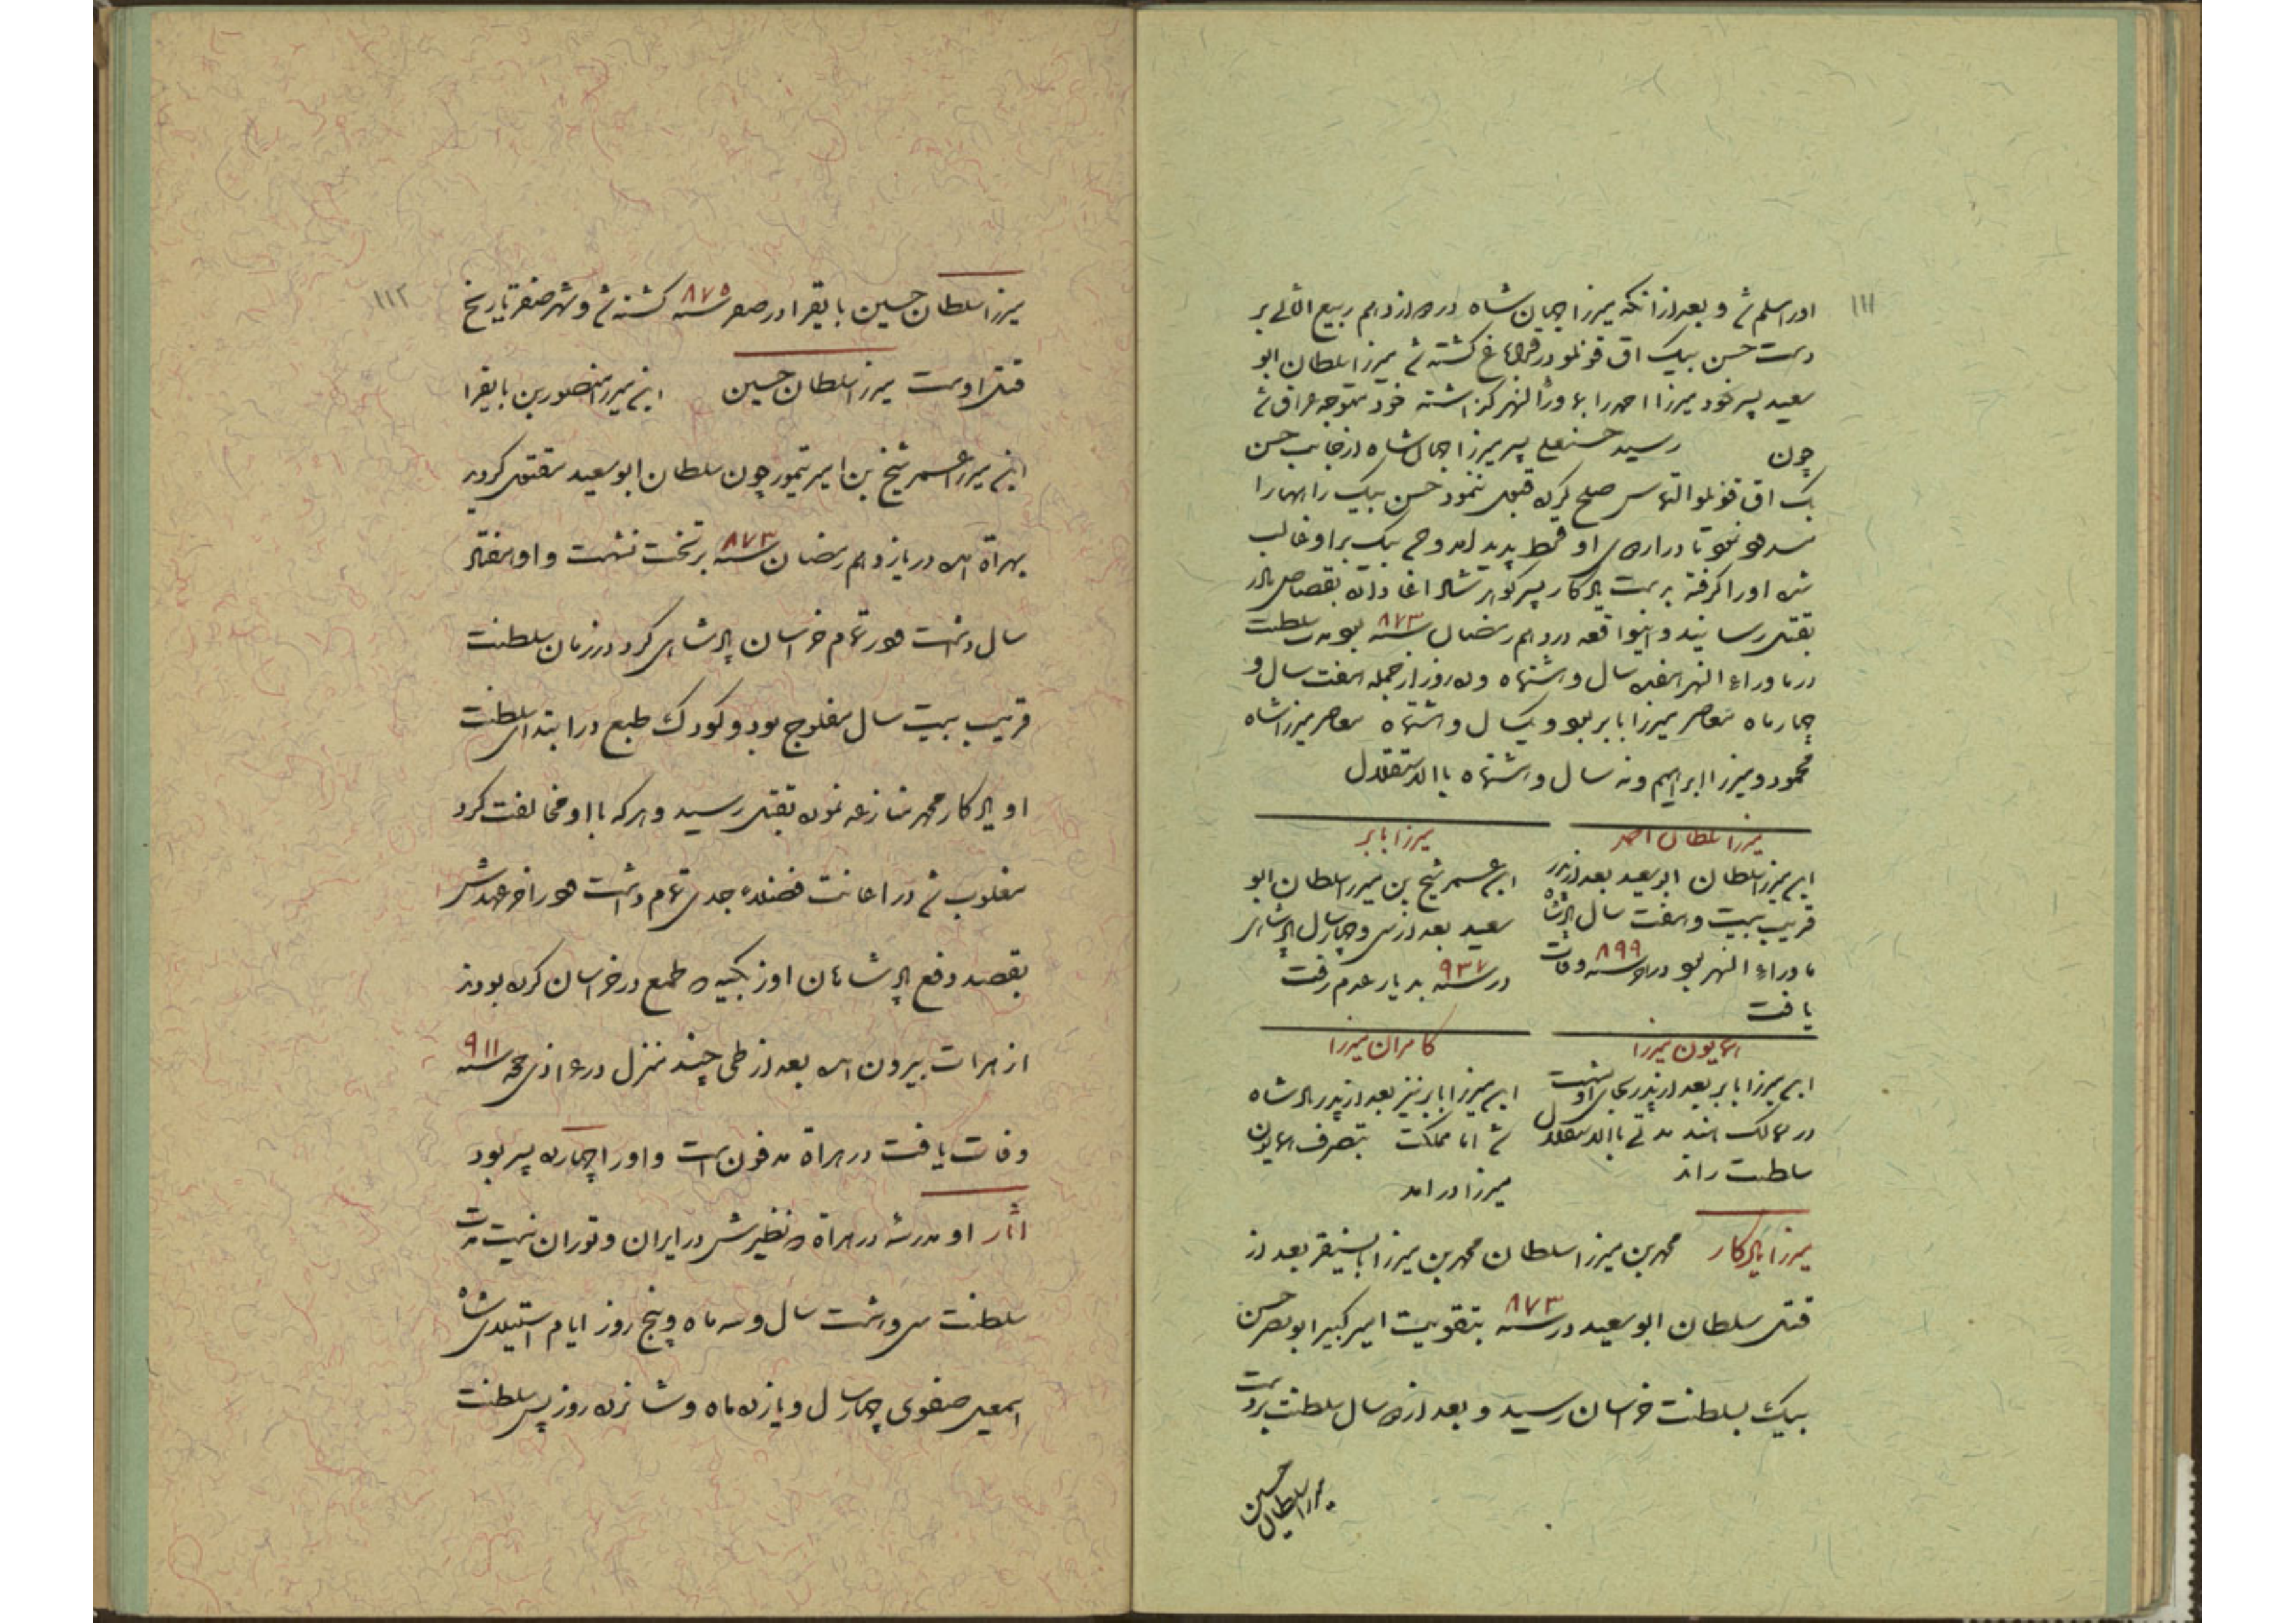 ١١١
اورا مسلم شد و بعد از آنکه میرزا جهان شاه در دوازدهم ربیع الثانی بر
دست حسن بیک اق قونلو در قراباغ کشته شد میرزا سلطان ابو
سعید پسر خود میرزا احمد را بماوراالنهر گذاشته خود متوجه عراق شد
چون رسید حسنعلی پسر میرزا جهان شاه از جانب حسن
بک اق قونلو التماس صلح کرده قبول ننمود حسن بیک راهها را
مسدود نمود تا در اردوی او قحط پدید امد و حسن بیک بر او غالب
شده اورا گرفته بدست یادگار پسر گوهر شاد اغا داده بقصاص مادر
بقتل رسانید و اینواقعه در دهم رمضان سنه ٨٧٣ بود مدت سلطنت
در ماوراء النهر هفده سال و هشتماه و ده روز از جمله هفت سال و
چهار ماه معاصر میرزا بابر بود و یکسال و هشتماه معاصر میرزا شاه
محمود و میرزا ابراهیم و نه سال و هشتماه باالاستقلال
میرزا سلطان احمد
ابن میرزا سلطان ابو سعید بعد از پدر
قریب بیست و هفت سال پادشاه
ماوراء النهر بود در سنه ٨٩٩ وفات
یافت
میرزا بابر
ابن عمر شیخ بن میرزا سلطان ابو
سعید بعد از سی و چهار سال پادشاهی
در سنه ٩٣٧ بدیار عدم رفت
همایون میرزا
ابن میرزا بابر بعد از پدر بجای او نشست
در ممالک هند مدتی باالاستقلال
سلطنت راند
کامران میرزا
ابن میرزا بابر نیز بعد از پدر پادشاه
شد اما مملکت بتصرف همایون
میرزا در امد
میرزا یادگار محمد بن میرزا سلطان محمد بن میرزا بایسنقر بعد از
قتل سلطان ابو سعید در سنه ٨٧٣ بتقویت امیر کبیر ابو نصر حسن
بیک بسلطنت خراسان رسید و بعد از دو سال سلطنت بر دست
میرزا سلطان حسین
١١٢
میرزا سلطان حسین بایقرا در صفر سنه ٨٧٥ کشته شد و شهر صفر تاریخ
قتل اوست میرزا سلطان حسین ابن میرزا منصور بن بایقرا
ابن میرزا عمر شیخ بن امیر تیمور چون سلطان ابو سعید مقتول گردید
بهراة امده در یازدهم رمضان سنه ٨٧٣ بر تخت نشست و او هفتاد
سال داشت و در تمام خراسان پادشاهی کرد در زمان سلطنت
قریب بیست سال مفلوج بود و کودک طبع در ابتدای سلطنت
او یادگار محمد منازعه نموده بقتل رسید و هر که با او مخالفت کرد
مغلوب شد در اعانت فضلاء جدی تمام داشت و در اخر عهدش
بقصد دفع پادشاهان اوزبکیه که طمع در خراسان کرده بودند
از هرات بیرون امده بعد از طی چند منزل در ١٤ ذی حجه سنه ٩١١
وفات یافت در هراة مدفون است و اورا چهارده پسر بود
اثار او مدرسه در هراة که نظیرش در ایران و توران نیست مدت
سلطنت سی و هشت سال و سه ماه و پنج روز ایام استیلای شاه
اسمعیل صفوی چهار سال و یازده ماه و شانزده روز پس سلطنت